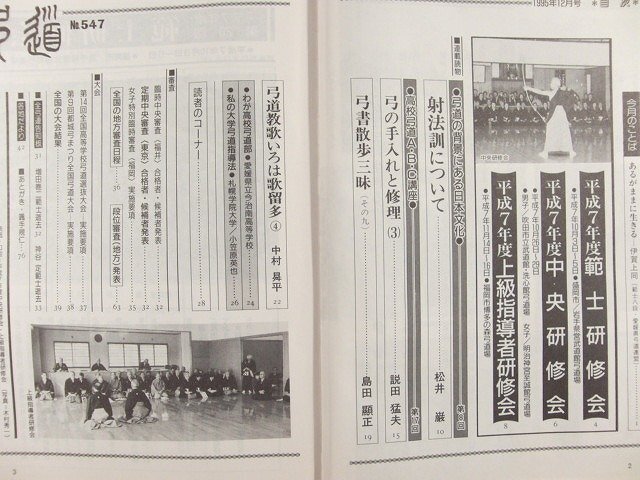 1995年12月号 ＊目次＊
今月のことば
あるがままに生きる 伊賀上 同
中央研修会
平成７年度 範士研修会 4
●平成７年10月3日〜5日●盛岡市／岩手県営武道館弓道場
平成７年度 中央研修会 6
●平成７年10月26日〜29日
男子／吹田市立武道館・洗心館弓道場 女子／明治神宮至誠館弓道場
平成７年度 上級指導者研修会 8
●平成７年11月14日〜16日●福岡市博多の森弓道場
■連載読物
●弓道の背景にある日本文化●
射法訓について 松井 巖 10
●高校弓道ＡＢＣ講座● 第17回
弓の手入れと修理（3） 説田 猛夫 15
弓書散歩三昧（その九） 島田 顯正 19
2
弓道 No.547
弓道教歌いろは歌留多④ 中村 曻平 22
●わが高校弓道部●愛媛県立今治南高等学校 24
●私の大学弓道指導法●札幌学院大学／小笠原英也 26
読者のコーナー 28
■審査
臨時中央審査（福井）合格者・候補者発表 32
定期中央審査（東京）合格者・候補者発表 32
女子特別臨時中央審査（福岡）実施要項 35
全国の地方審査日程 36 段位審査（地方）発表 63
■大会
第14回全国高等学校弓道選抜大会 実施要項 37
第9回都城弓まつり全国弓道大会 実施要項 38
全国の大会結果 39
■全弓連告知板 31 増田巻二範士逝去 32 神谷 定範士逝去 33
■地連だより 42 ■あとがき・諷手規亡 76
上級指導者研修会
3